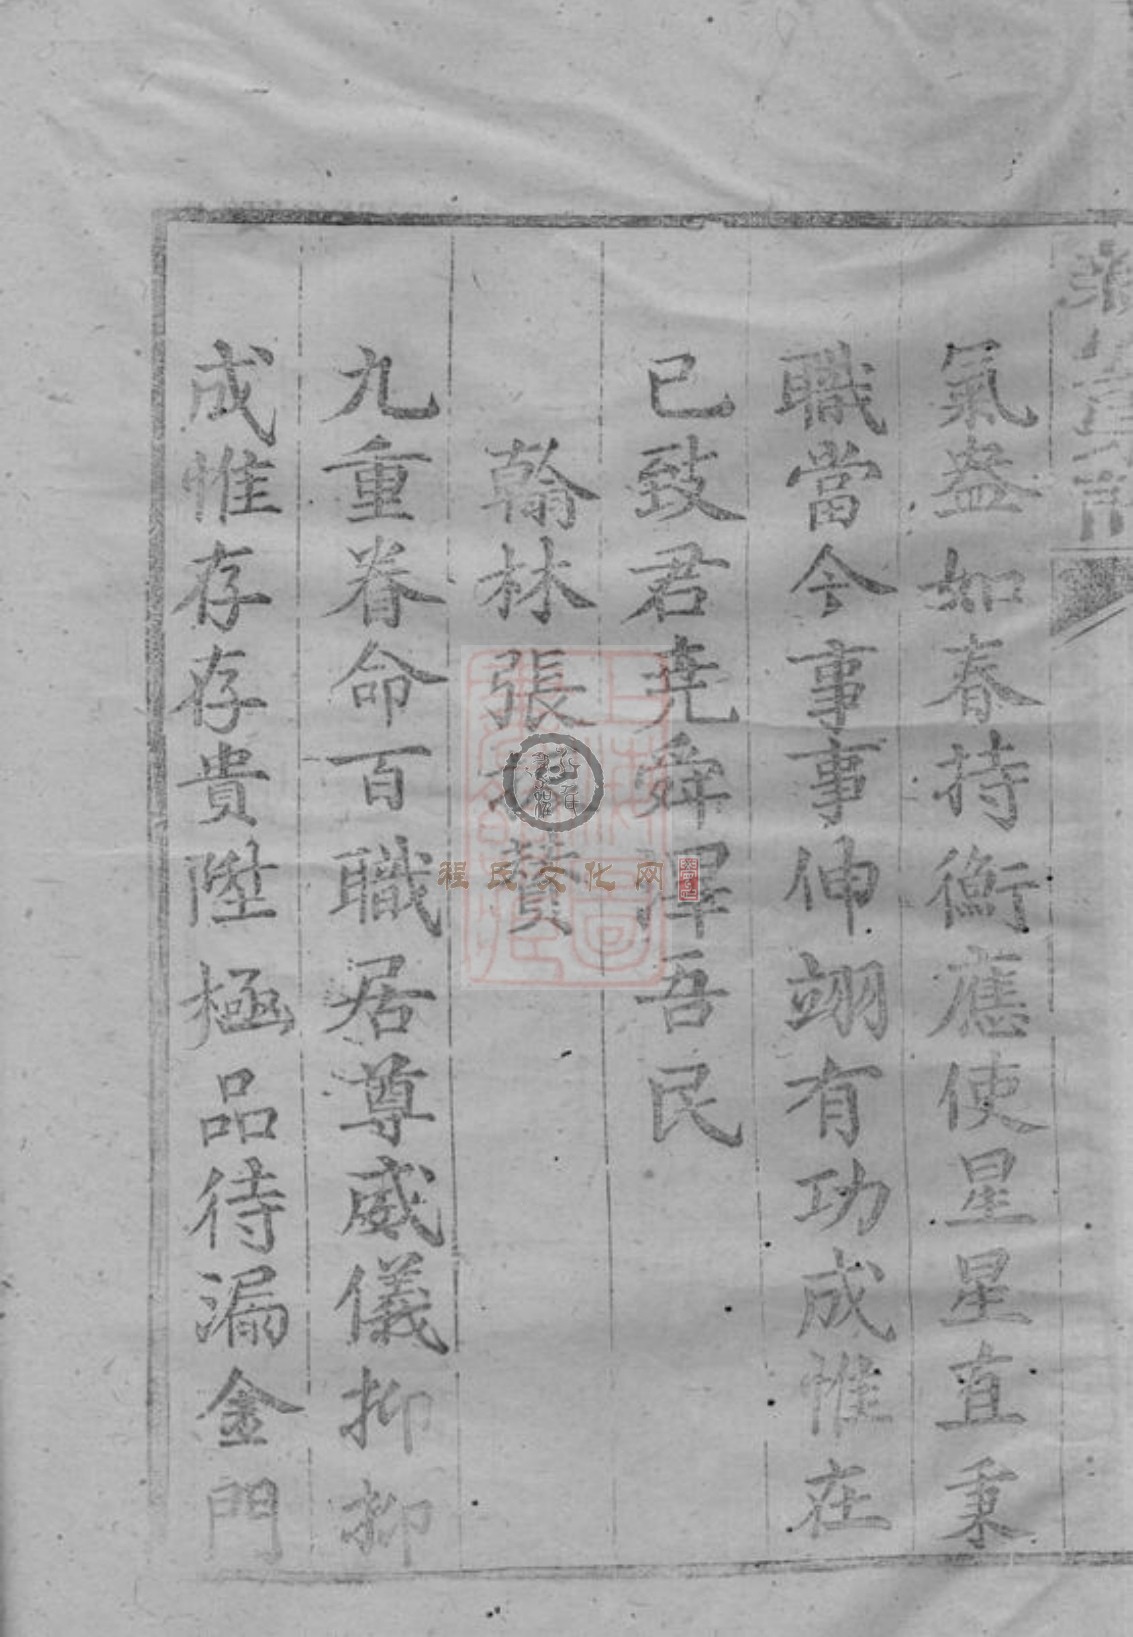 氣盎如春持衡應使星星直秉
職當今事事伸翊有功成惟在
已致君堯舜澤吾民
翰林張贊
九重眷命百職居尊威儀抑抑
成惟存存貴陞極品待漏金門
程氏文化网